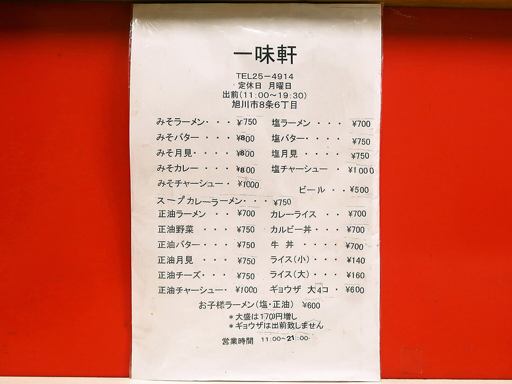 一味軒
TEL25-4914
定休日 月曜日
出前(11:00~19:30)
旭川市8条6丁目
みそラーメン・・・¥750 塩ラーメン・・・¥700
みそバター・・・¥800 塩バター・・・・¥750
みそ月見・・・¥800 塩月見・・・・¥750
みそカレー・・・¥800 塩チャーシュー ¥1000
みそチャーシュー・¥1000 ビール・・¥500
スープカレーラーメン・・・¥750
正油ラーメン・・¥700 カレーライス・・¥700
正油野菜・・・¥750 カルビー丼・・・¥700
正油バター・・・¥750 牛丼・・・・¥700
正油月見・・・¥750 ライス(小)・・・¥140
正油チーズ・・・¥750 ライス(大)・・・¥160
正油チャーシュー・¥1000 ギョウザ 大4コ・¥600
お子様ラーメン(塩・正油) ¥600
*大盛は170円増し
*ギョウザは出前致しません
営業時間 11:00~21:00